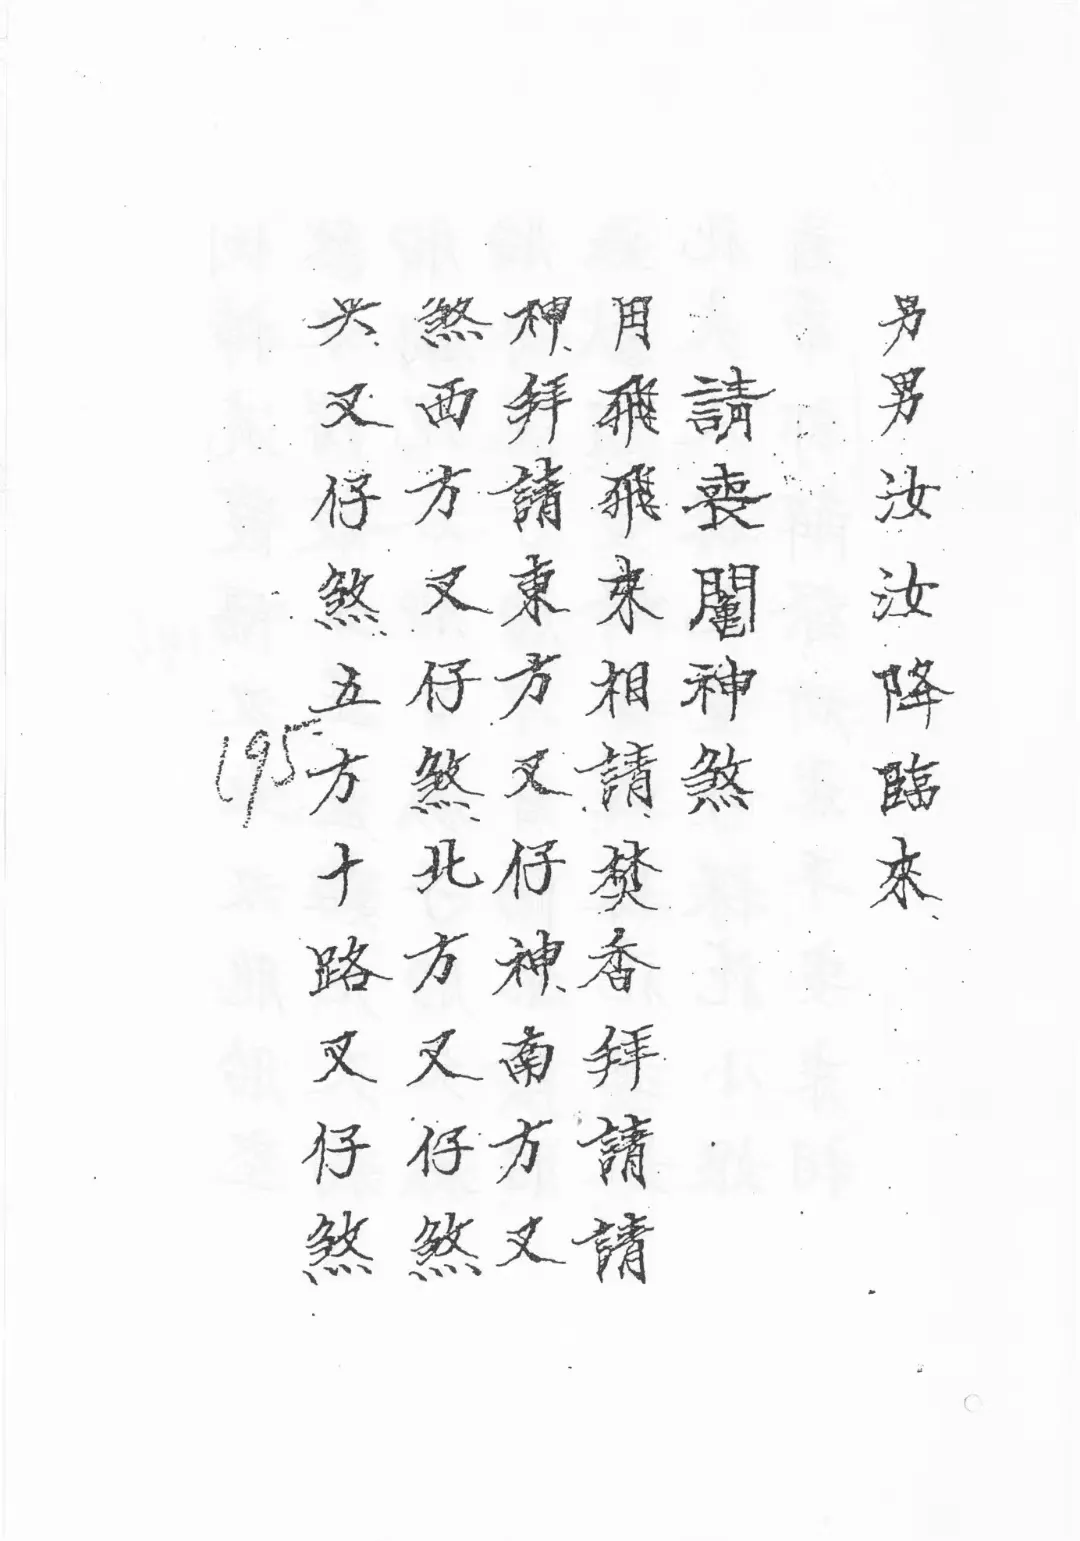 男男汝汝降臨來
請喪闇神煞
用飛飛來相請焚香拜請請
神拜請東方又仔神南方又
煞西方又仔煞北方又仔煞
又仔煞五方十路又仔煞
195